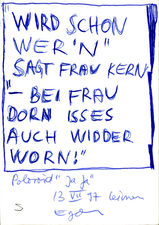 "WIRD SCHON
WER'N"
SAGT FRAU KERN.
"– BEI FRAU
DORN ISSES
AUCH WIDDER
WORN!"
Polaroid "Ja Ja"
13 VII 97 Leimen